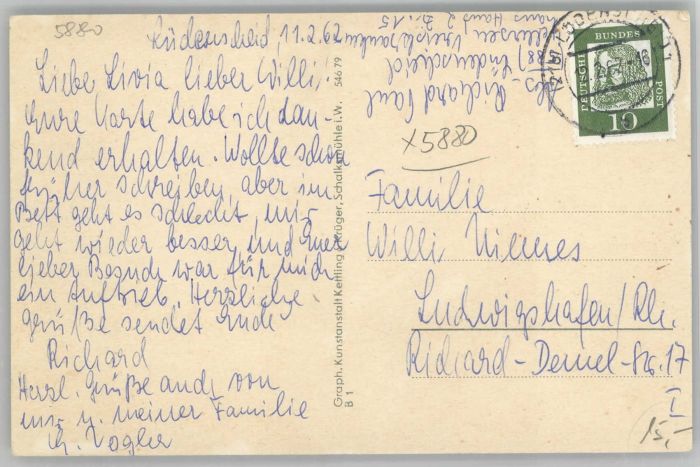 5880
Lüdenscheid, 11.2.62
Liebe Livia lieber Willi,
Eure Karte habe ich dan-
kend erhalten. Wollte schon
früher schreiben, aber im
Bett geht es schlecht, mir
geht wieder besser, und Euer
lieber Besuch war für mich
ein Auftrieb. Herzliche
Grüße sendet Euch
Richard
Herzl. Grüße auch von
mir u. meiner Familie
Vogler
Graph. Kunstanstalt Kettling & Krüger, Schalksmühle i. W. 546 79
B 1
Abs. Richard Paul
Lüdenscheid
Haus 2 Zi. 15
DEUTSCHE BUNDESPOST
10
x5880
Familie
Willi Niemes
Ludwigshafen/Rh.
Richard-Demel-Str. 17
I
15,-